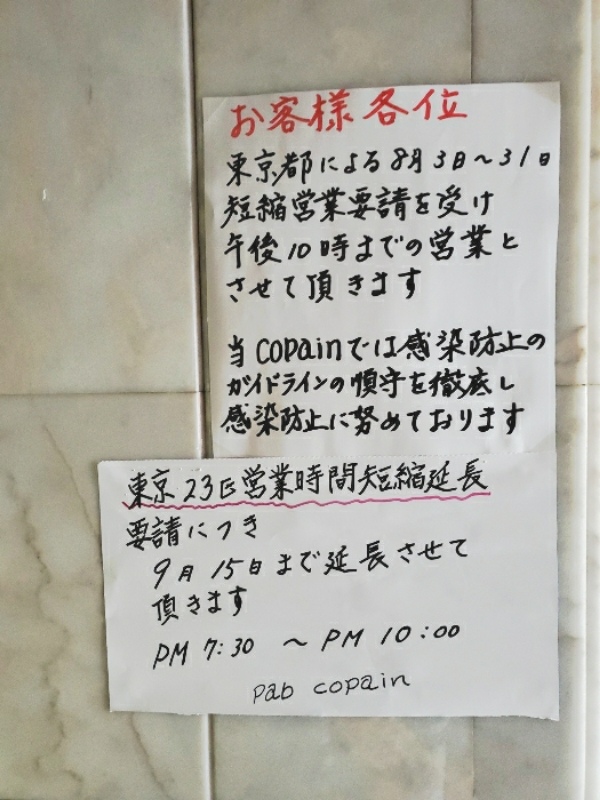 お客様各位
東京都による8月3日～31日
短縮営業要請を受け
午後10時までの営業と
させて頂きます
当copainでは感染防止の
ガイドラインの順守を徹底し
感染防止に努めております
東京23区営業時間短縮延長
要請につき
9月15日まで延長させて
頂きます
PM 7:30 ～ PM 10:00
pab copain